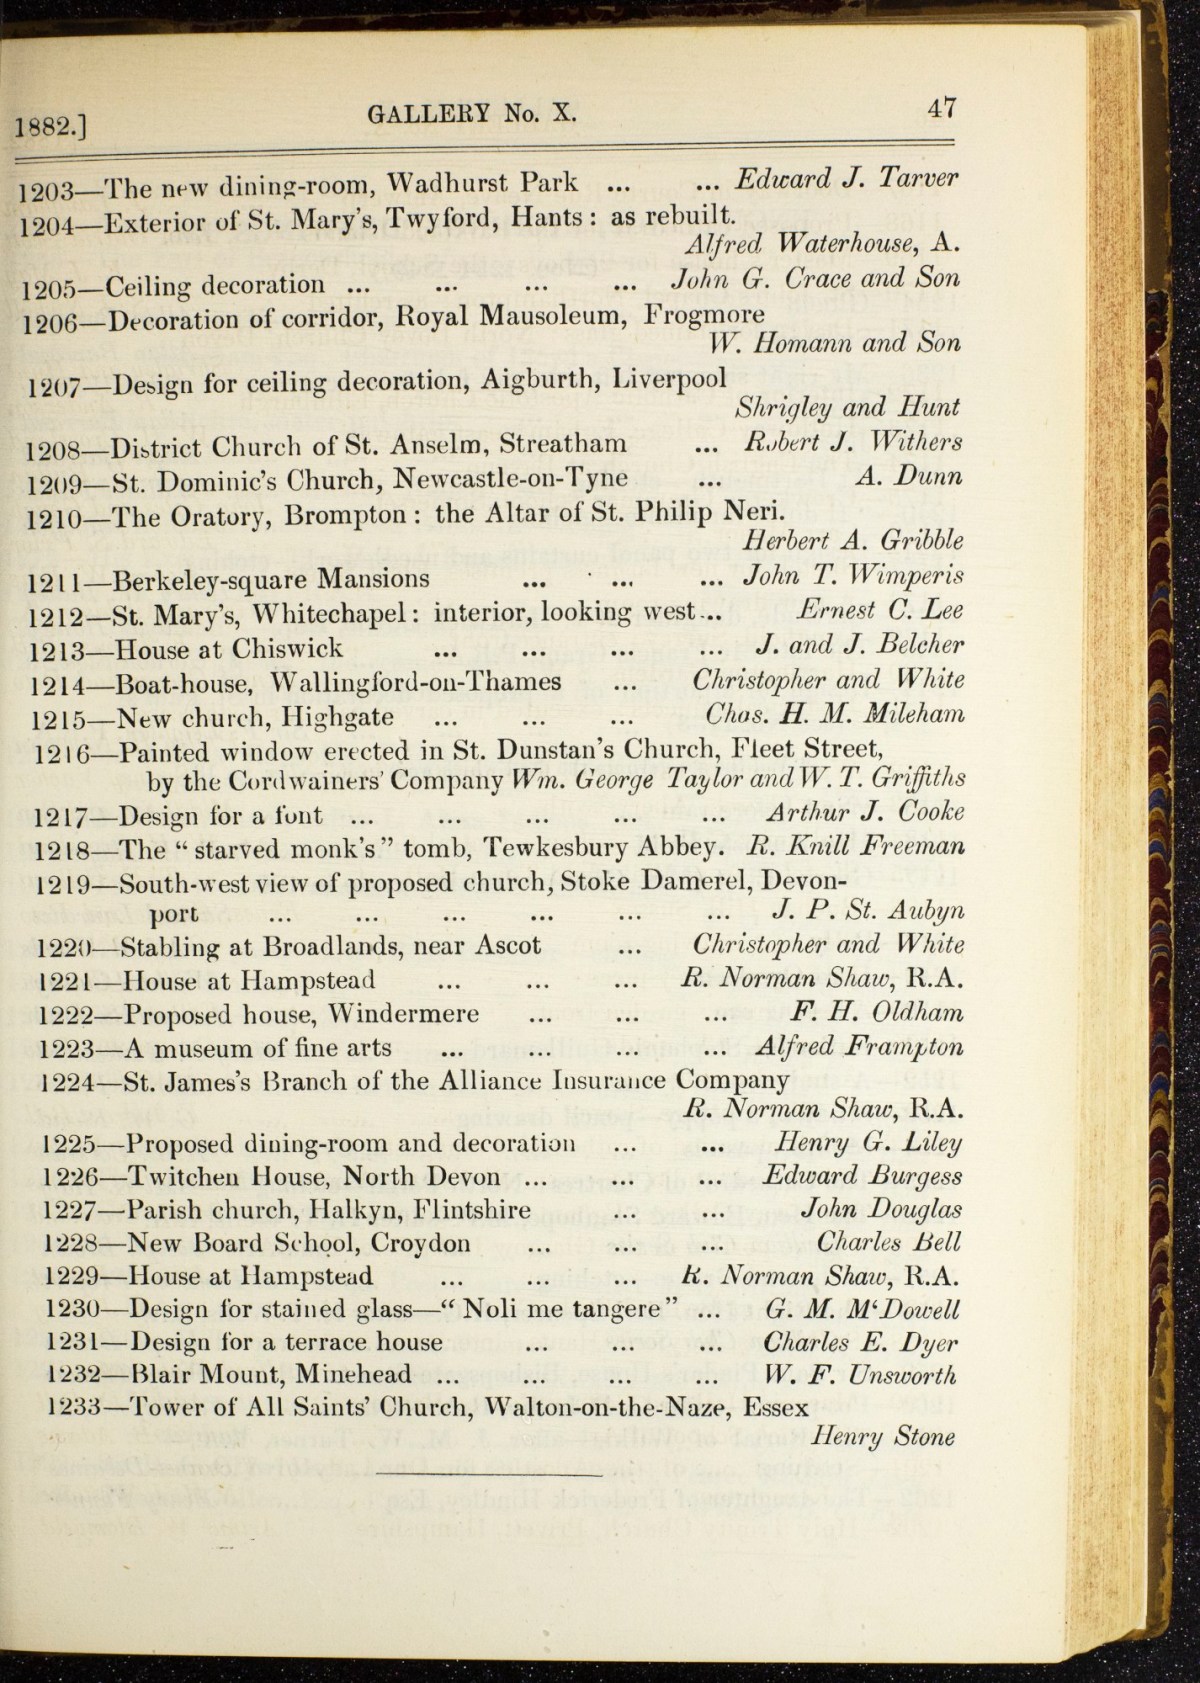 1882.] GALLERY No. X. 47
1203—The new dining-room, Wadhurst Park ... ... Edward J. Tarver
1204—Exterior of St. Mary's, Twyford, Hants: as rebuilt.
Alfred Waterhouse, A.
1205—Ceiling decoration ... ... ... ... John G. Crace and Son
1206—Decoration of corridor, Royal Mausoleum, Frogmore
W. Homann and Son
1207—Design for ceiling decoration, Aigburth, Liverpool
Shrigley and Hunt
1208—District Church of St. Anselm, Streatham ... Robert J. Withers
1209—St. Dominic's Church, Newcastle-on-Tyne ... A. Dunn
1210—The Oratory, Brompton: the Altar of St. Philip Neri.
Herbert A. Gribble
1211—Berkeley-square Mansions ... ... ... John T. Wimperis
1212—St. Mary's, Whitechapel: interior, looking west... Ernest C. Lee
1213—House at Chiswick ... ... ... ... J. and J. Belcher
1214—Boat-house, Wallingford-on-Thames ... Christopher and White
1215—New church, Highgate ... ... ... Chas. H. M. Mileham
1216—Painted window erected in St. Dunstan's Church, Fleet Street,
by the Cordwainers' Company Wm. George Taylor and W. T. Griffiths
1217—Design for a font ... ... ... ... ... Arthur J. Cooke
1218—The "starved monk's" tomb, Tewkesbury Abbey. R. Knill Freeman
1219—South-west view of proposed church, Stoke Damerel, Devon-
port ... ... ... ... ... ... J. P. St. Aubyn
1220—Stabling at Broadlands, near Ascot ... Christopher and White
1221—House at Hampstead ... ... ... R. Norman Shaw, R.A.
1222—Proposed house, Windermere ... ... ... F. H. Oldham
1223—A museum of fine arts ... ... ... ... Alfred Frampton
1224—St. James's Branch of the Alliance Insurance Company
R. Norman Shaw, R.A.
1225—Proposed dining-room and decoration ... ... Henry G. Liley
1226—Twitchen House, North Devon ... ... ... Edward Burgess
1227—Parish church, Halkyn, Flintshire ... ... John Douglas
1228—New Board School, Croydon ... ... ... Charles Bell
1229—House at Hampstead ... ... ... R. Norman Shaw, R.A.
1230—Design for stained glass—"Noli me tangere" ... G. M. M'Dowell
1231—Design for a terrace house ... ... ... Charles E. Dyer
1232—Blair Mount, Minehead ... ... ... ... W. F. Unsworth
1233—Tower of All Saints' Church, Walton-on-the-Naze, Essex
Henry Stone